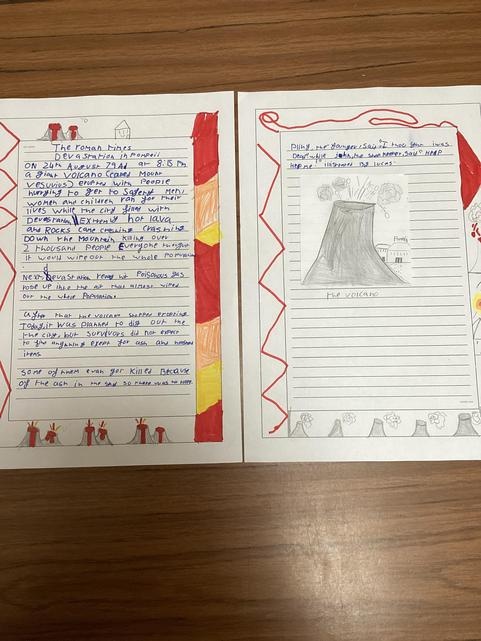 The Roman times
Devastation in Pompeii
ON 24th August 79AD at 8:15 PM
a giant VOLCANO Called Mount
Vesuvius erupted with People
hurrying to get to Safety Men
women and children ran for their
lives while the city filled with
Devastation EXtremly hot lava
and ROCKS came crashing
DOWN the MOUNTAIN Killing over
2 thousand people Everyone thought
it would wipe out the whole
Next Devastation Poisonous gas
rose up into the air that almost wiped
out the whole Population.
after that the volcano erupting
Today, it was planned to dig out the
the city but survivors did not expect
to anything except for ash and
items
Some of them even got Killed Because
of the ash in the so there was no
Pliny the
dead while said "HELP
help me"
Pompeii
the volcano